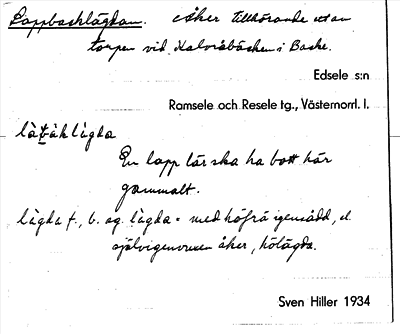 Lappbacklägdan. Åker tillhörande utan
torpen vid Kalvsbäcken i Backe.
Edsele s:n
Ramsele och Resele tg., Västernorrl. l.
En lapp lär ska ha bott här
gammalt.
lägda f., b. sg. lägda = med höfrö igensådd, el.
självigenvuxen åker, hölägda.
Sven Hiller 1934